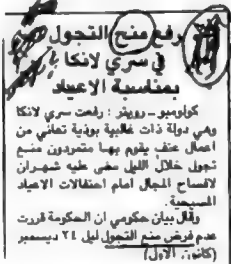 رفع منح التجول
في سري لانكا
بمناسبة الاعياد
كولومبو - رويتر : رفعت سري لانكا
وهي دولة ذات غالبية بوذية تعاني من
اعمال عنف يقوم بها متمردون منع
تجول خلال الليل مضى عليه شهران
لافساح المجال امام احتفالات الاعياد
المسيحية .
وقال بيان حكومي ان الحكومة قررت
عدم فرض منع التجول ليل ٢٤ ديسمبر
(كانون الاول)